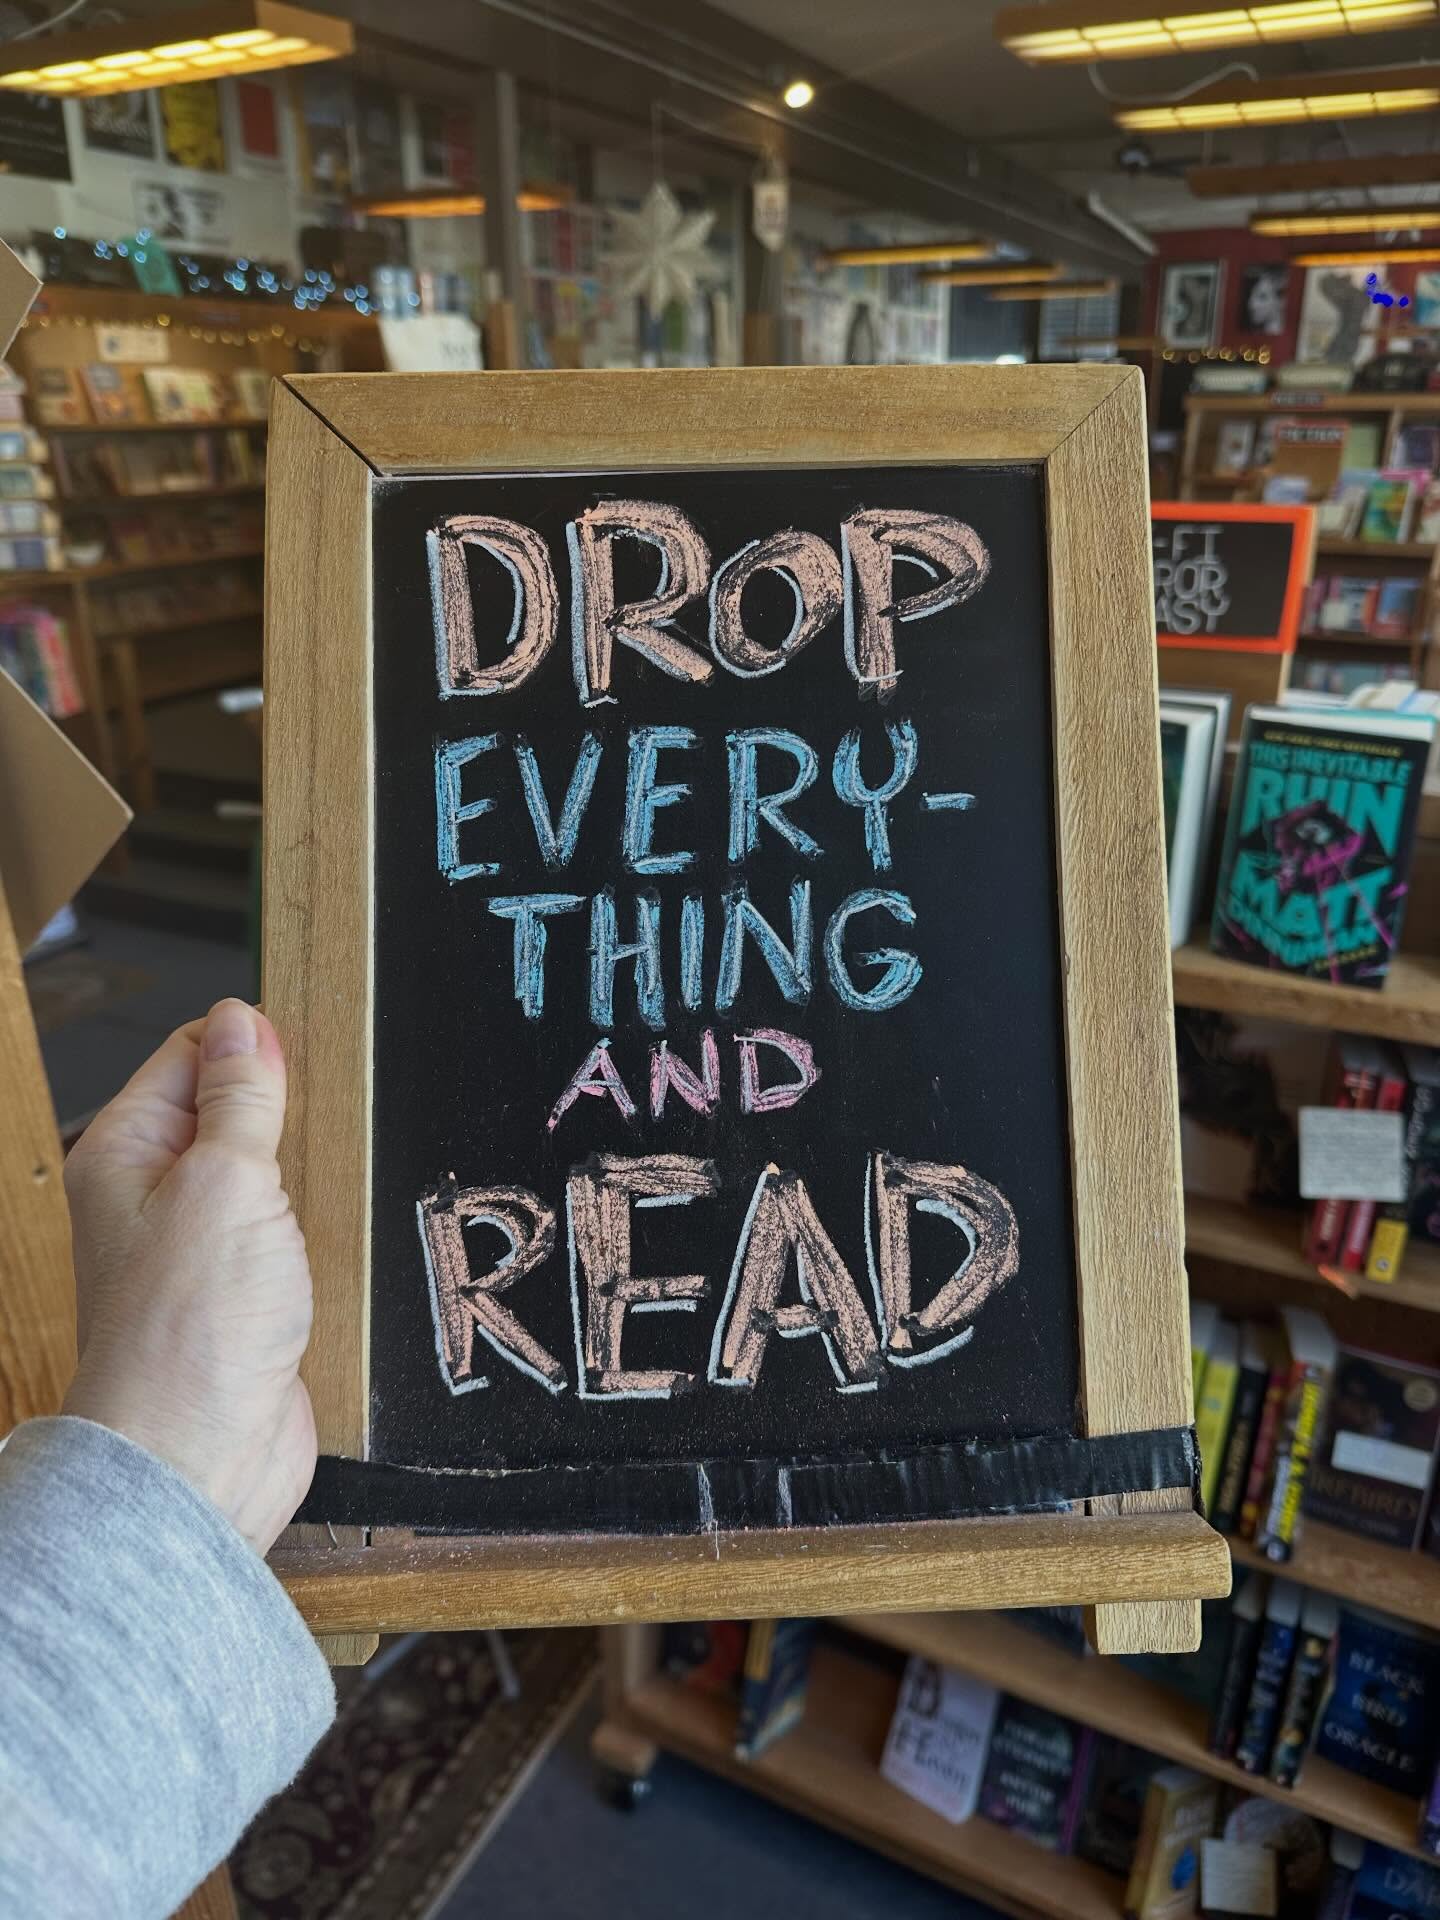 DROP
EVERY-
THING
AND
READ
FICTION
THIS INEVITABLE
RUIN
MATT
DINNIMAN
FIREBIRD
BLACK
BIRD
ORACLE